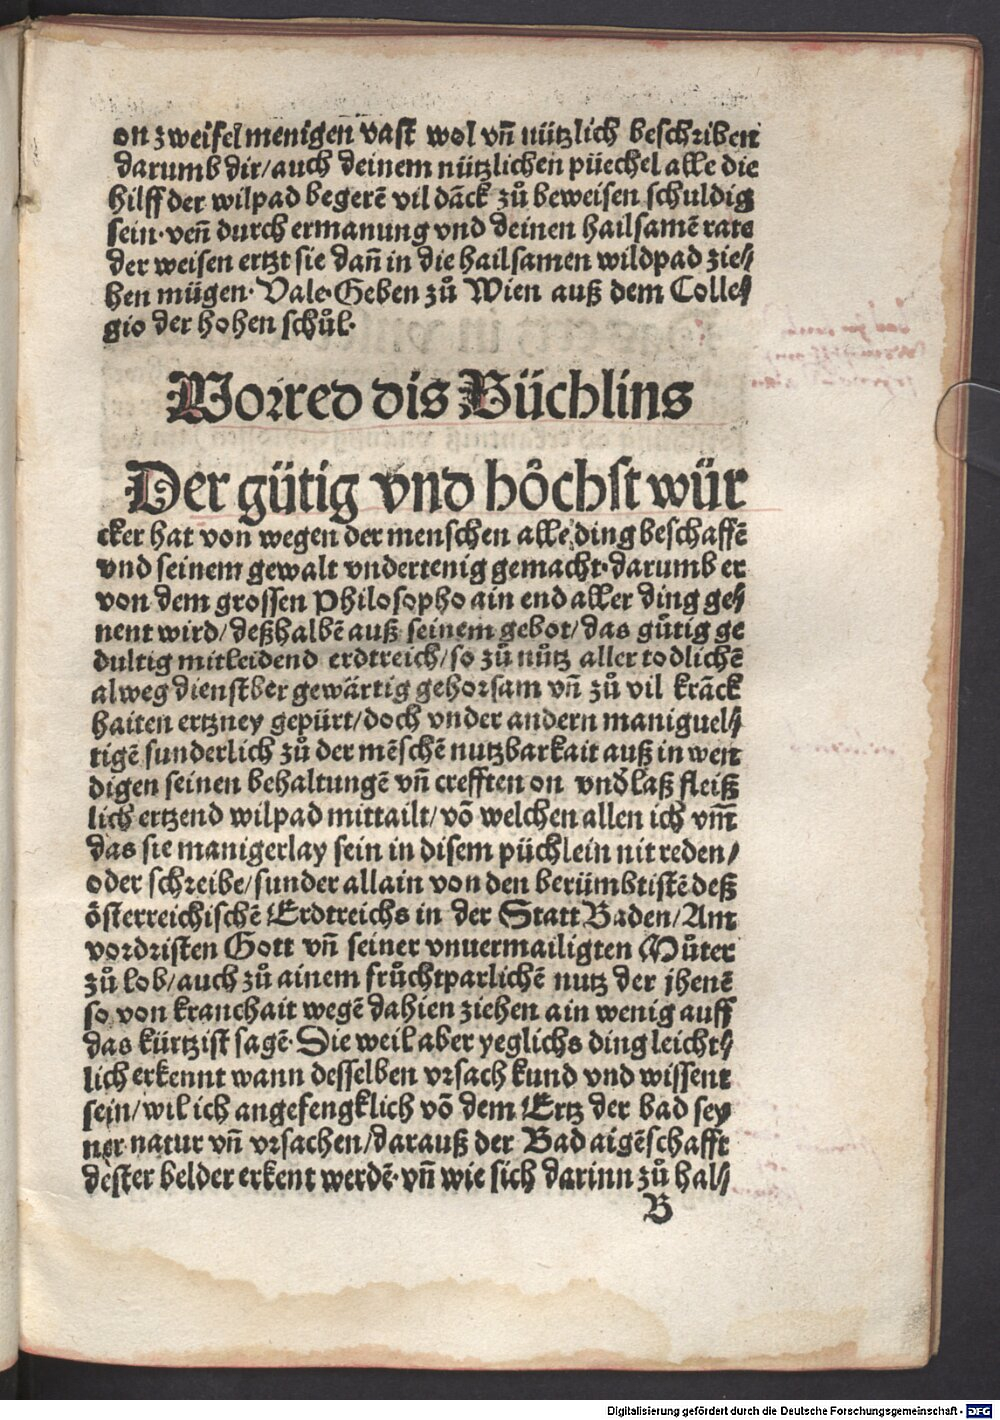 on zweifel menigen vast wol vn̄ nützlich beschriben
darumb dir/auch deinem nützlichen püechel alle die
hilff der wilpad begerē vil dāck zů beweisen schuldig
sein· ven̄ durch ermanung vnd deinen hailsamē rate
der weisen ertzt sie dan̄ in die hailsamen wildpad zie⸗
hen mügen· Vale· Geben zů Wien auß dem Colle⸗
gio der hohen schůl·
Vorred dis Büchlins
Der gütig vnd höchst wür
cker hat von wegen der menschen alle ding beschaffē
vnd seinem gewalt vndertenig gemacht· darumb er
von dem grossen Philosopho ain end aller ding ge⸗
nent wird/deßhalbē auß seinem gebot/das gůtig ge
dultig mitleidend erdtreich/so zů nůtz aller todlichē
alweg dienstber gewärtig gehorsam vn̄ zů vil krāck
haiten ertzney gepürt/doch vnder andern maniguel⸗
tigē sunderlich zů der mēschē nutzbarkait auß in wen
digen seinen behaltungē vn̄ crefften on vndlaß fleiß
lich ertzend wilpad mittailt/vō welchen allen ich vm̄
das sie manigerlay sein in disem püchlein nit reden/
oder schreibe/sunder allain von den berümbtistē deß
österreichischē Erdtreichs in der Statt Baden/Am
vordristen Gott vn̄ seiner vnuermailigten Můter
zů lob/auch zů ainem frůchtparlichē nutz der jhenē
so von kranchait wegē dahien ziehen ain wenig auff
das kürtzist sagē· Die weil aber yeglichs ding leicht⸗
lich erkennt wann desselben vrsach kund vnd wissent
sein/wil ich angefengklich vō dem Ertz der bad sey
ner natur vn̄ vrsachen/darauß der Bad aigēschafft
dester belder erkent werdē· vn̄ wie sich darinn zů hal⸗
B
Digitalisierung gefördert durch die Deutsche Forschungsgemeinschaft - DFG